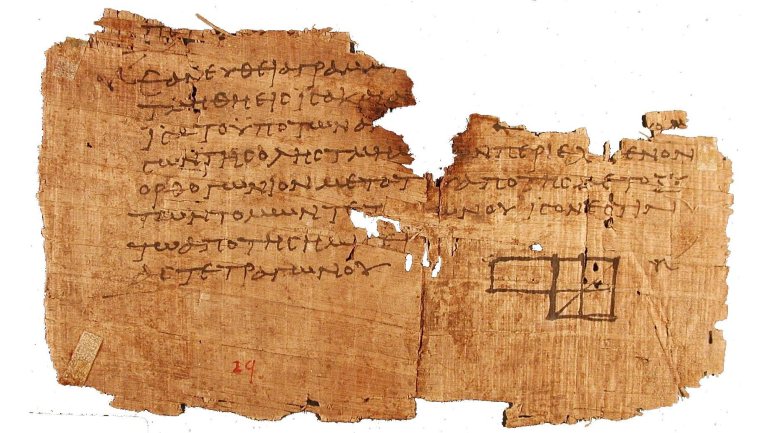 ΕΑΝΕΥΘΕΙΑΓΡΑΜΜ
ΤΜΗΘΗΕΙϹΙϹΑΚΑΙΑ
ΙϹΑΤΟΥΠΟΤΩΝΑ
ϹΩΝΤΗϹΟΛΗϹΤΜΗ ΩΝΠΕΡΙΕΧ ΜΕΝΟΝ
ΟΡΘΟΓΩΝΙΟΝΜΕΤΟΤ ΑΠΟΤΗϹΜΕΤΟΞΥ
ΤΩΝΤΟΜΩΝΤΕΤ ΩΝΟΥΙϹΟΝΕϹΤΙΝ
ΤΩΑΠΟΤΗϹΗΜΙϹΕΙ
ΑϹΤΕΤΡΑΓΩΝΟΥ
29